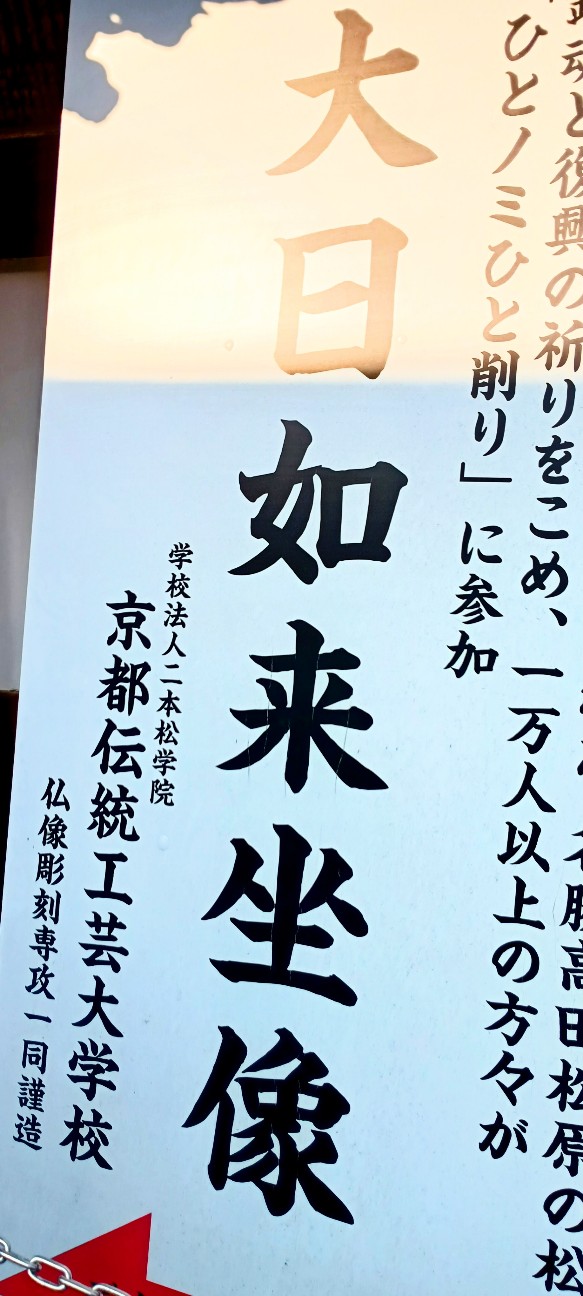 名勝高田松原の松
鎮魂と復興の祈りをこめ、一万人以上の方々が
ひとノミひと削り」に参加
大日如来坐像
学校法人二本松学院
京都伝統工芸大学校
仏像彫刻専攻一同謹造